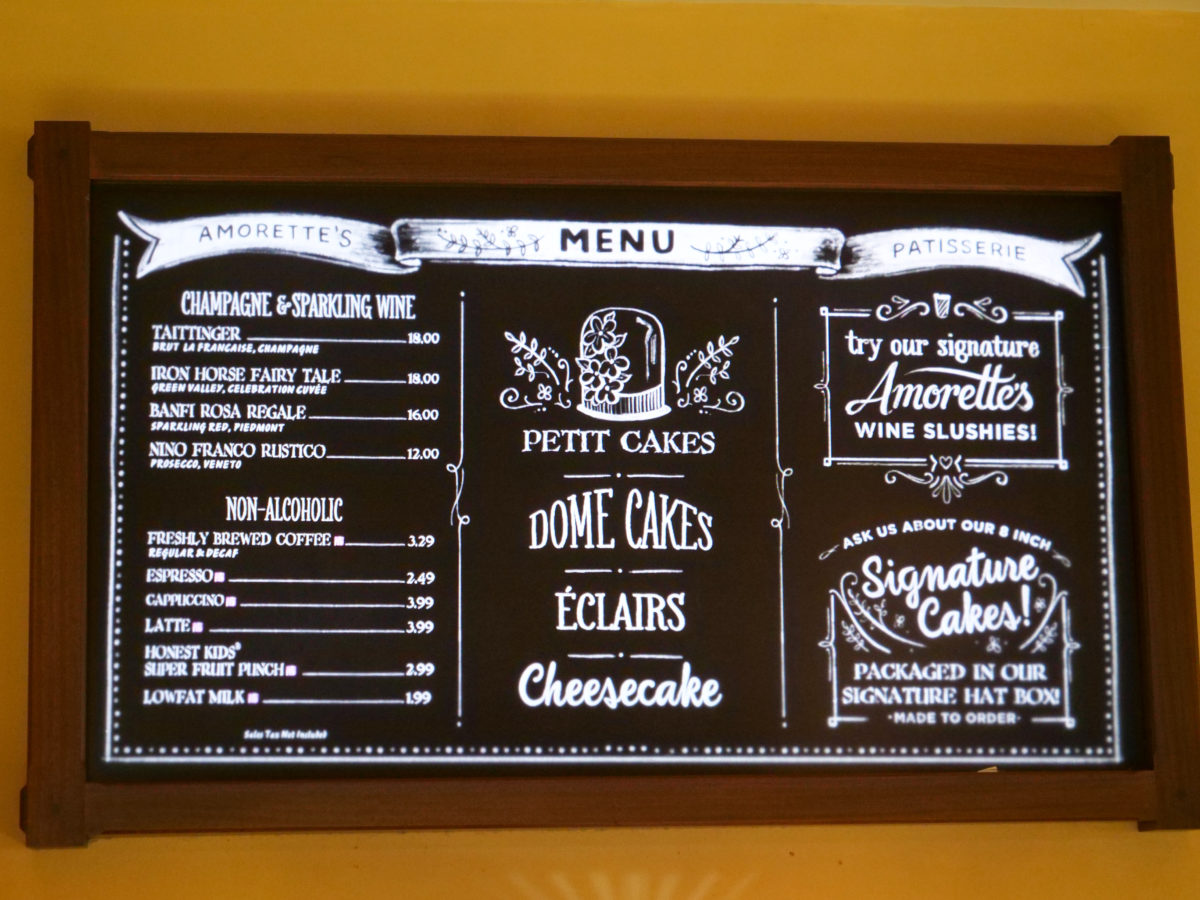 AMORETTE'S MENU PATISSERIE
CHAMPAGNE & SPARKLING WINE
TAITTINGER 18.00
BRUT LA FRANCAISE, CHAMPAGNE
IRON HORSE FAIRY TALE 18.00
GREEN VALLEY, CELEBRATION CUVÉE
BANFI ROSA REGALE 16.00
SPARKLING RED, PIEDMONT
NINO FRANCO RUSTICO 12.00
PROSECCO, VENETO
NON-ALCOHOLIC
FRESHLY BREWED COFFEE 3.29
REGULAR & DECAF
ESPRESSO 2.49
CAPPUCCINO 3.99
LATTE 3.99
HONEST KIDS®
SUPER FRUIT PUNCH 2.99
LOWFAT MILK 1.99
Sales Tax Not Included
PETIT CAKES
DOME CAKES
ÉCLAIRS
Cheesecake
try our signature
Amorette's
WINE SLUSHIES!
ASK US ABOUT OUR 8 INCH
Signature
Cakes!
PACKAGED IN OUR
SIGNATURE HAT BOX!
·MADE TO ORDER·